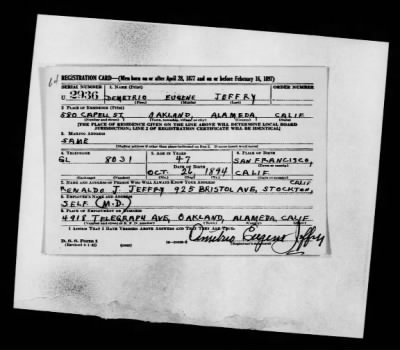 REGISTRATION CARD—(Men born on or after April 28, 1877 and on or before February 16, 1897)
SERIAL NUMBER 1. NAME (Print) ORDER NUMBER
U 2936 DEMETRIO EUGENE JEFFRY
(First) (Middle) (Last)
2. PLACE OF RESIDENCE (Print)
580 CAPELL ST. OAKLAND, ALAMEDA CALIF
(Number and street) (Town, township, village, or city) (County) (State)
[THE PLACE OF RESIDENCE GIVEN ON THE LINE ABOVE WILL DETERMINE LOCAL BOARD
JURISDICTION; LINE 2 OF REGISTRATION CERTIFICATE WILL BE IDENTICAL]
3. MAILING ADDRESS
SAME
[Mailing address if other than place indicated on line 2. If same insert word same]
4. TELEPHONE 5. AGE IN YEARS 6. PLACE OF BIRTH
GL 8031 47 SAN FRANCISCO,
DATE OF BIRTH (Town or county)
OCT. 26 1894 CALIF
(Mo.) (Day) (Yr.) (State or country)
7. NAME AND ADDRESS OF PERSON WHO WILL ALWAYS KNOW YOUR ADDRESS CALIF
RENALDO J. JEFFRY 925 BRISTOL AVE, STOCKTON,
8. EMPLOYER'S NAME AND ADDRESS
SELF (M.D.)
9. PLACE OF EMPLOYMENT OR BUSINESS
4918 TELEGRAPH AVE, OAKLAND, ALAMEDA, CALIF
(Number and street or R. F. D. number) (Town) (County) (State)
I AFFIRM THAT I HAVE VERIFIED ABOVE ANSWERS AND THAT THEY ARE TRUE.
D. S. S. Form 1 Demetrio Eugene Jeffry
(Revised 4-1-42) (over) (Registrant's signature)